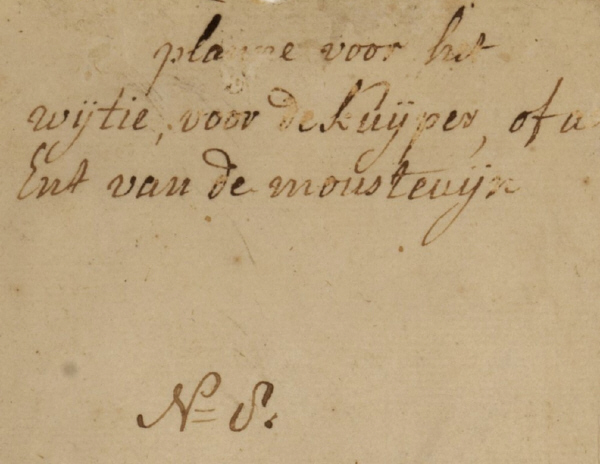 planne voor het
wijtie, voor de Kuijper, of a
Ent van de moustevijn
No= 8.